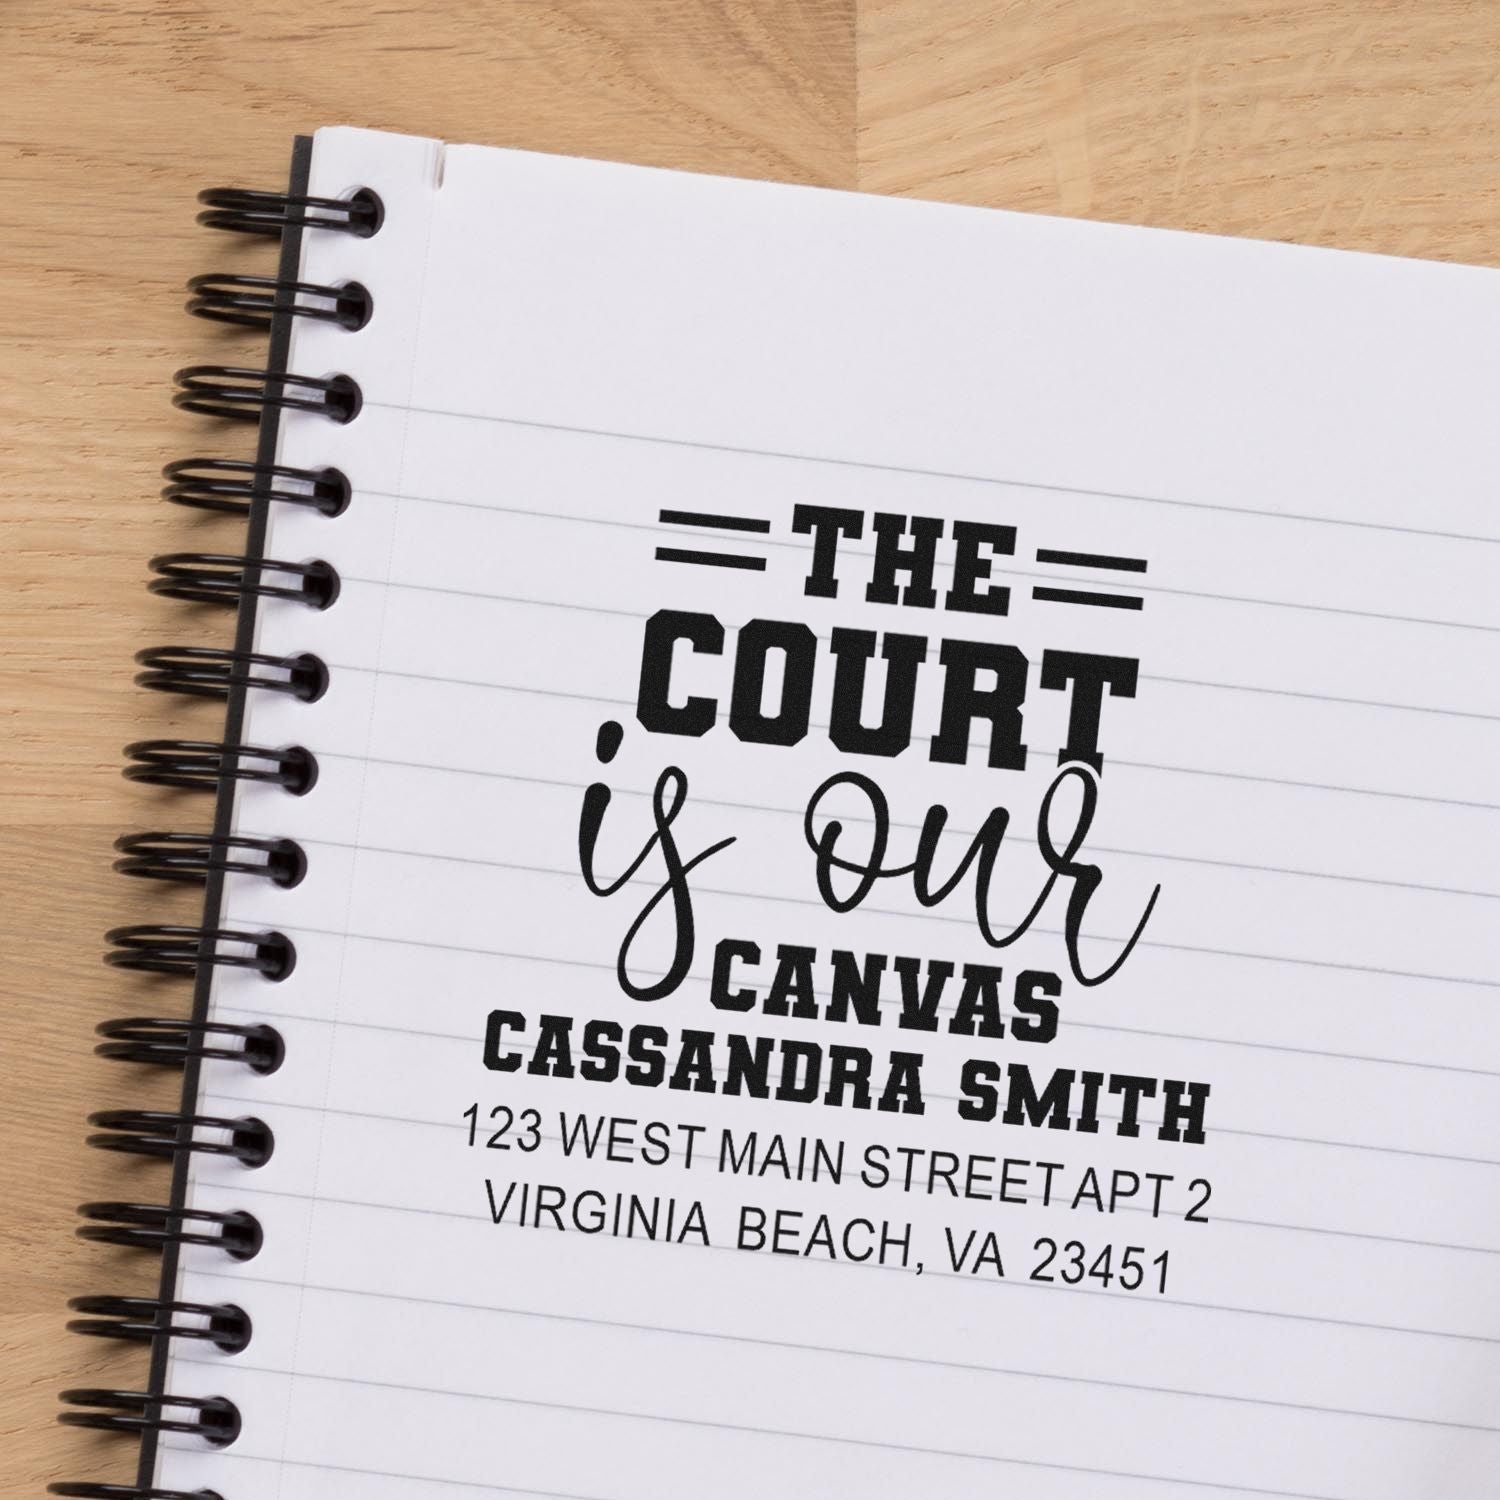 THE
COURT
is our
CANVAS
CASSANDRA SMITH
123 WEST MAIN STREET APT 2
VIRGINIA BEACH, VA 23451